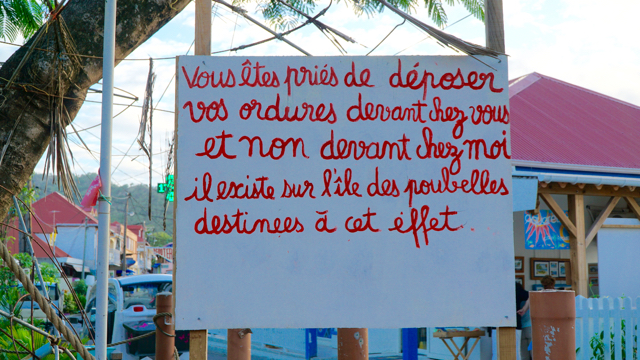 Vous êtes priés de déposer
vos ordures devant chez vous
et non devant chez moi
il existe sur l'île des poubelles
destinees à cet effet..